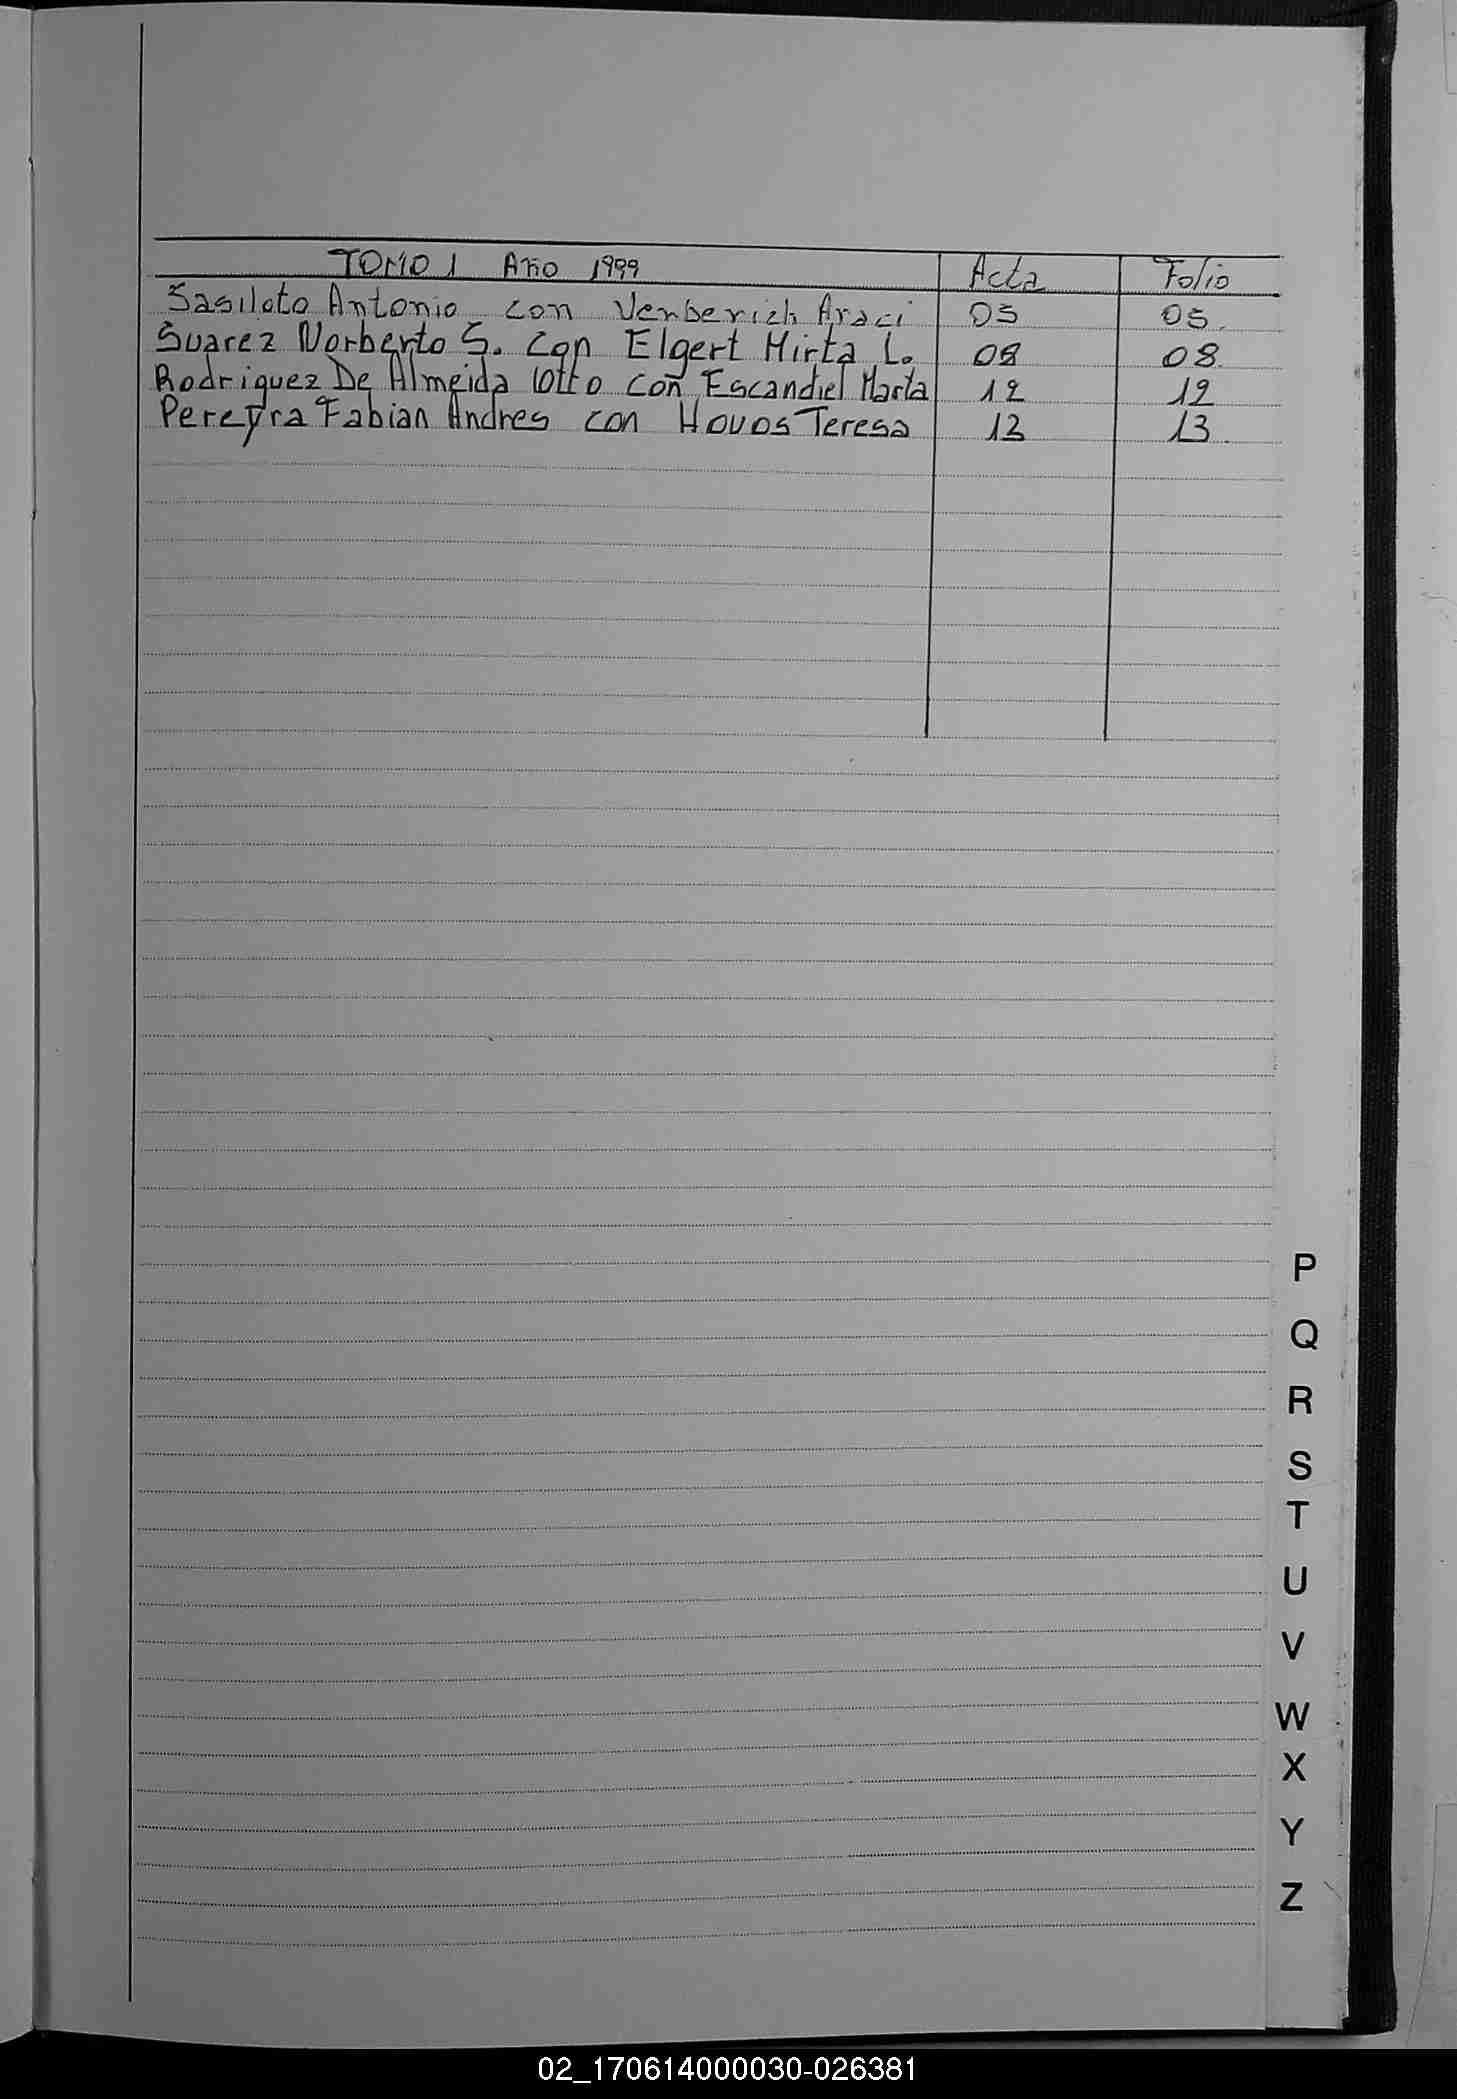 TOMO 1 Año 1999 Acta Folio
Sasiloto Antonio con Venberich Araci 05 05.
Suarez Norberto S. con Elgert Mirta L. 08 08.
Rodriguez De Almeida Otto con Escandiel Marta 12 12
Pereyra Fabian Andres con Hovos Teresa 13 13.
P
Q
R
S
T
U
V
W
X
Y
Z
02_170614000030-026381